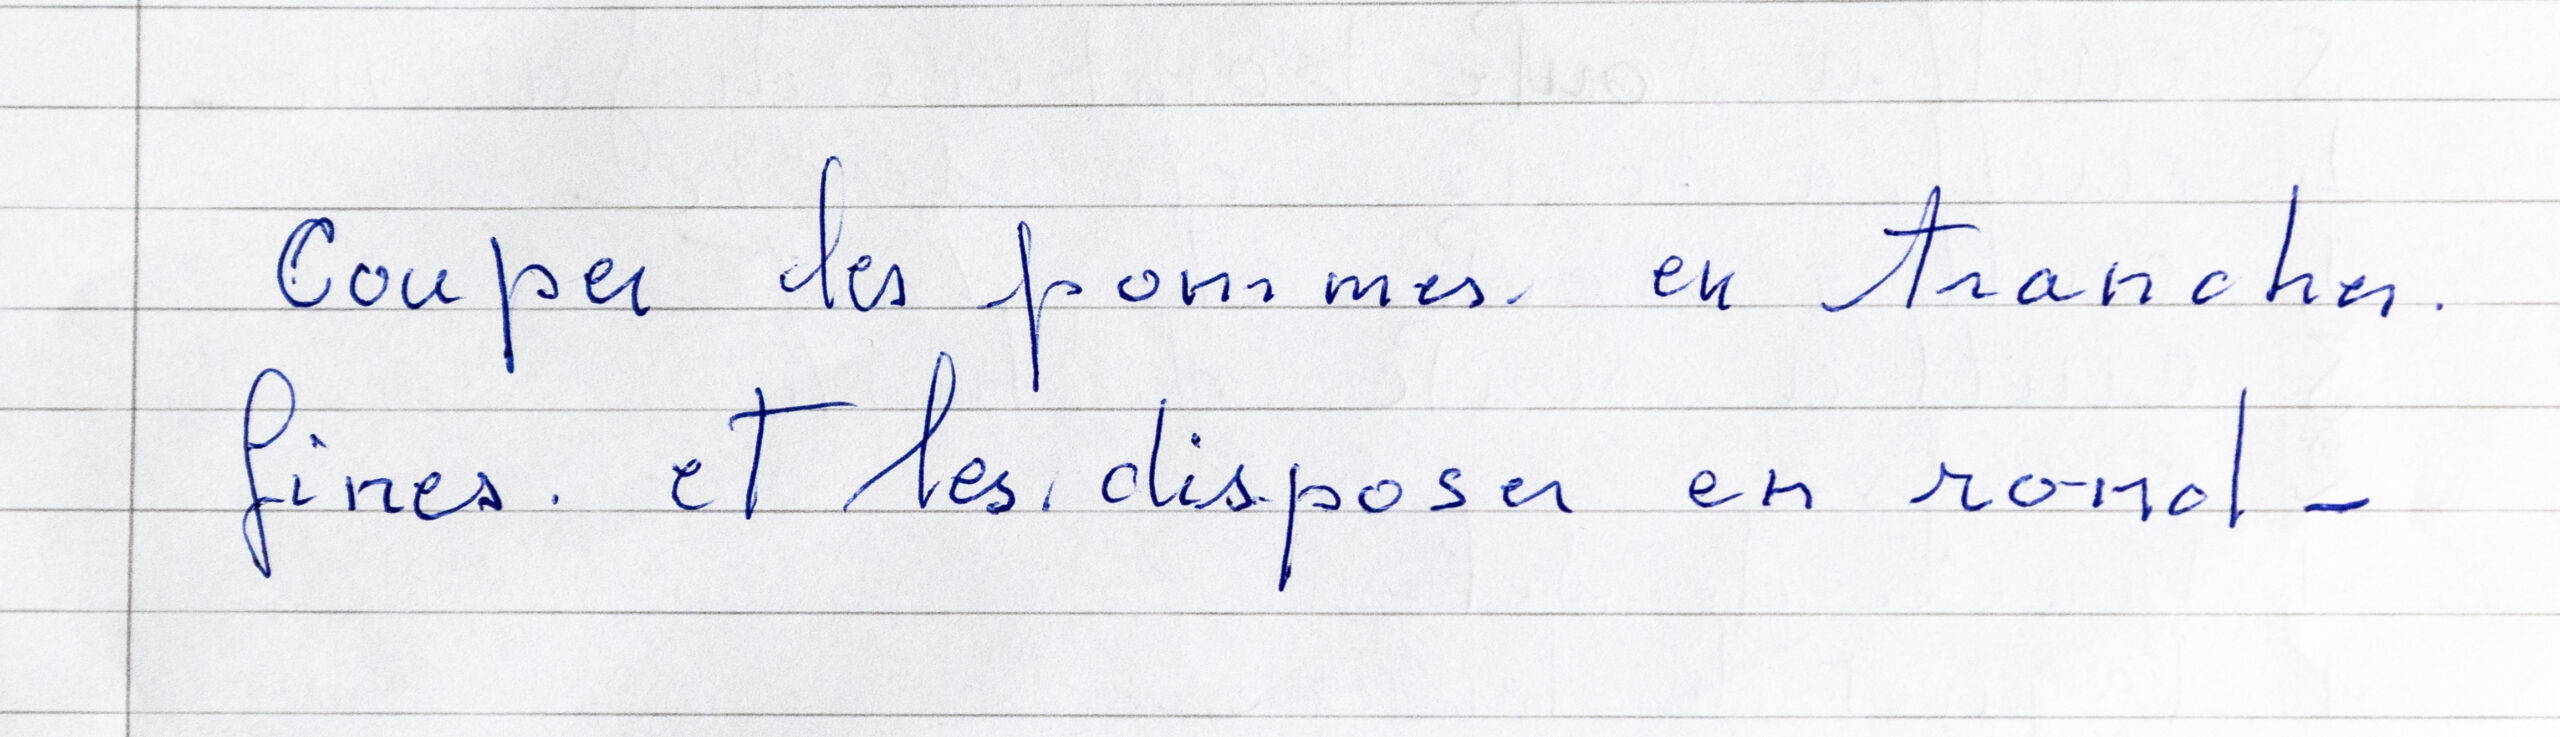 Couper les pommes en tranches.
fines. et les disposer en rond -